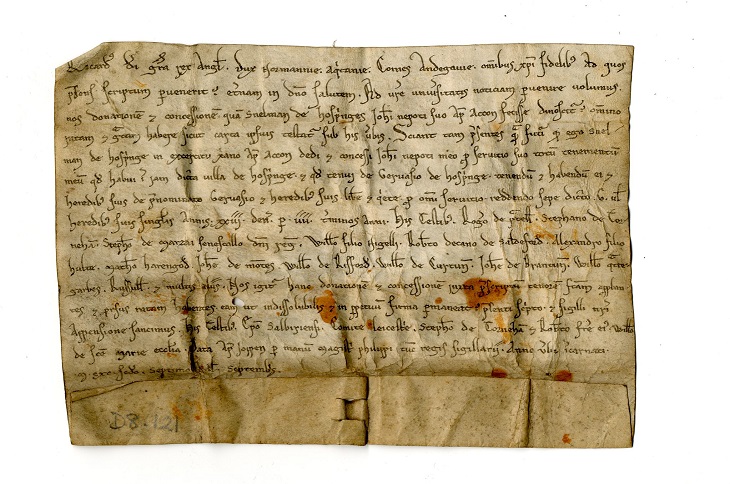 Ricard' di gra rex Angl'. Dux Normannie. Aqitanie. Comes Andegavie. omnibus xpi fidelib' Ad quos
psens scriptum pervenerit etnam in dno salutem. Ad vre universitatis noticiam pvenire volumus.
nos donatione & concessione qua Snelman de hosprnges Johi nepoti suo ap Accon fecisse
ratam & gtam habere sicut carta ipsius testatur sub his vbis. Sciant tam psentes q futi qd ego Snel
man de hosprnge in excercitu xano ap Accon dedi & concessi Johi nepoti meo p servicio suo totu tenementum
meu qd habui i jam dicta villa de hosprnge. & qd tenui de Gervasio de hosprnge. tenendu & habendu ei &
heredib' suis de pnominato Gervasio & heredib' suis libe & qete p omi servicio. reddendo sepe dicto. G. ul
heredib' suis singlis Annis. xxiii. den'. p. iiii. tminos anni. his testib'. Rogo de . Stephano de Tor
neha. Stepho de marzai senescallo dni rg'. Willo filio Rigelli. Robto decano de Saldeford. Alexandro filio
. Matho harengod. Johe de . Willo de Rifford. Willo de Curtun. Johe de Brantun. Willo
garbes. & multis aliis. Nos igit' hanc donatione & concessione juxta pscriptu tenore
& ratam habentes eam ut indissolubilis & in ppetuu firma pmaneat psenti scpto. & sigilli nri
Appensione sancimus. his testib'. Epo Salbiriensi. Comite Leicestre. Stepho de Torneha & Robto fre ei'. Willo
de sce marie ecclia. Data ap Joppen p manu magist philippi tuc regis sigillarii. Anno vbi icarnati.
septemb'.
D8.121